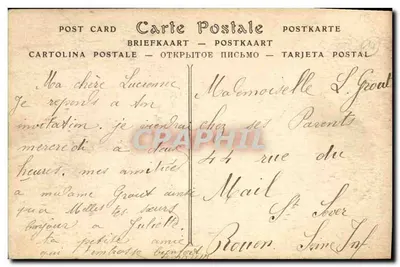 POST CARD Carte Postale POSTKARTE
BRIEFKAART — POSTKAART
CARTOLINA POSTALE — ОТКРЫТОЕ ПИСЬМО — TARJETA POSTAL
Ma chère Lucienne
Je réponds a ton
invitation. je viendrai
mercredi a
heures. mes amitiés
a madame Grout ainsi
qu'a Melles tes sœurs
bonjour a Juliette
ta petite amie
qui
Mademoiselle L. Grout
chez ses Parents
44 rue du
Mail
St Sever
Rouen Sne Inf
CARPHIL